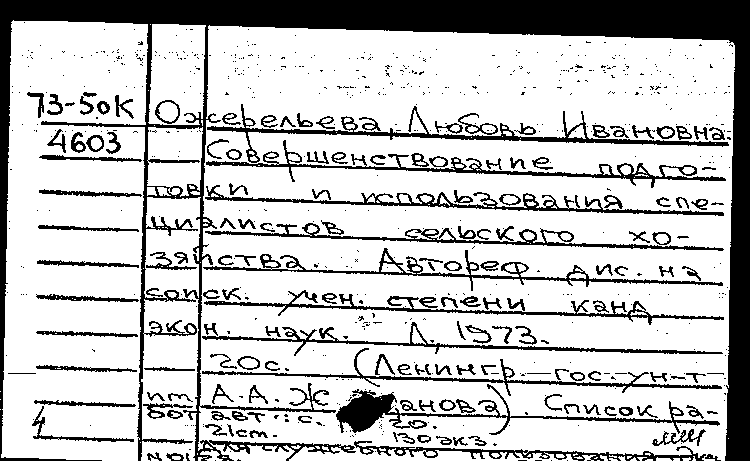 73-50к
4603
Ожерельева, Любовь Ивановна
Совершенствование подго-
товки и использования спе-
циалистов сельского хо-
зяйства. Автореф. дис. на
соиск. учен. степени канд
экон. наук. Л., 1973.
20с. (Ленингр. гос. ун-т
им. А.А. Ж анова). Список ра-
бот авт.: с. 20.
21ст. 130 экз.
Для служебного пользования